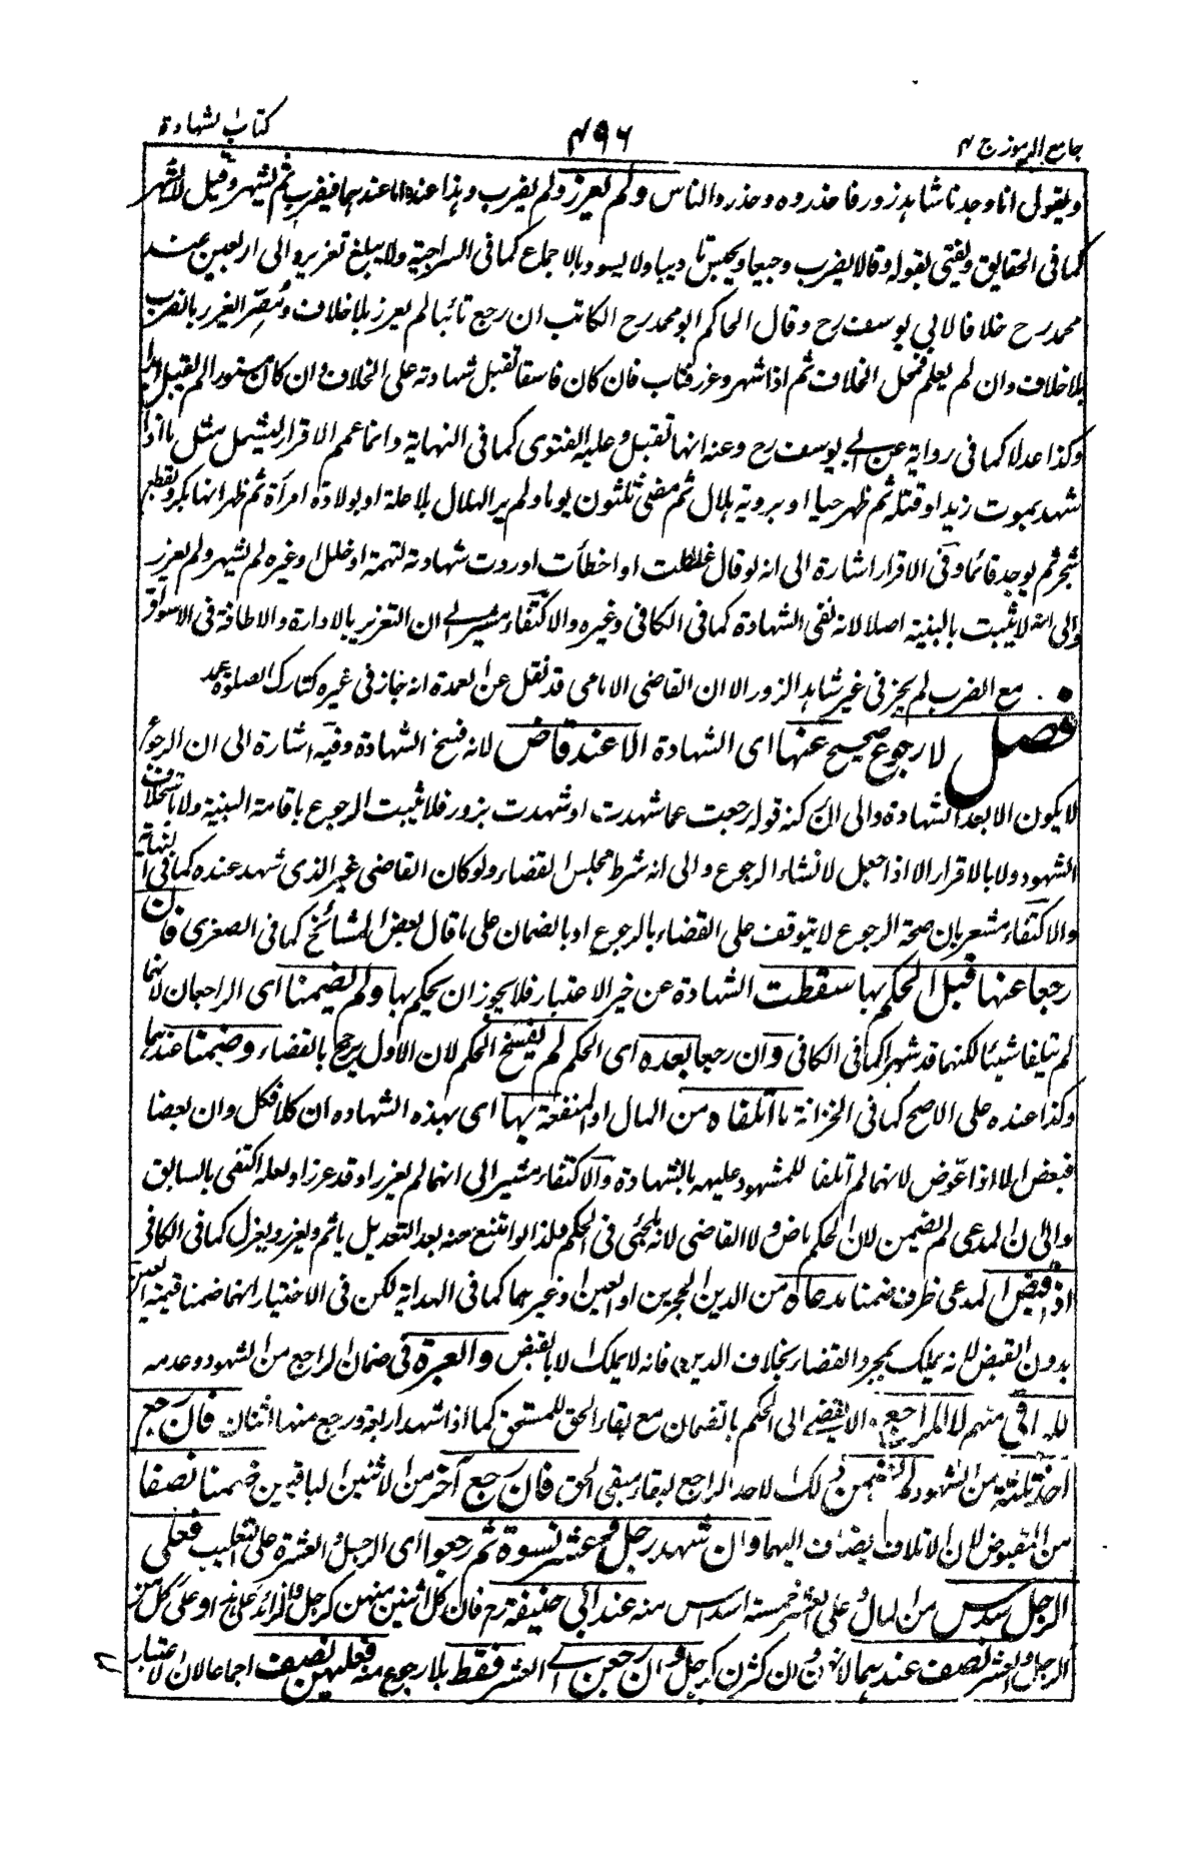 جامع الرموز ج ۴
۴۹۶
كتاب الشهادة
ويقول انا وجدنا شاهد زور فاحذروه وحذروا الناس ولم يعزر ولم يضرب وهذا عنده اما عندهما فيضرب ثم يشهر وقيل لا يشهر
كما في الحقايق ويفتى بقوله وقالا يضرب وجيعا ويحبس تا ديبا ولا يسود بالاجماع كما في السراجية ولا يبلغ تعزيره الى اربعين عند
محمد رح خلافا لابي يوسف رح وقال الحاكم ابو محمد رح الكاتب ان رجع تائبا لم يعزر بلا خلاف و مصر العزر بالضرب
بلا خلاف وان لم يعلم فمحل الخلاف ثم اذا شهر وعزر فتاب فان كان فاسقا تقبل شهادته على الخلاف وان كان مستورا لم تقبل ابدا
وكذا عدلا كما في رواية عن ابي يوسف رح وعنه انها تقبل وعليه الفتوى كما في النهاية وانما عمم الاقرار ليشمل مثل ما اذا
شهد بموت زيد او قتله ثم ظهر حيا او بروية هلال ثم مضى ثلثون يوما ولم ير الهلال بلا علة او بولادة امرأة ثم ظهر انها بكر او بقطع
شجر ثم يوجد قائما وفي الاقرار اشارة الى انه لو قال غلطت او اخطأت او ردت شهادته لتهمة او خلل او غيره لم يشهر ولم يعزر
والى انه لا يثبت بالبينة اصلا لانه نفى الشهادة كما في الكافي وغيره والاكتفاء مشير الى ان التعزير بالادارة والاطافة في الاسواق
مع الضرب لم يجز في غير شاهد الزور الا ان القاضي الامامي قد نقل عن العمدة انه جاز في غيره كتارك الصلوة عمد
فصل لا رجوع صحيح عنها اى الشهادة الا عند قاض لانه فسخ الشهادة وفيه اشارة الى ان الرجوع
لا يكون الا بعد الشهادة والى ان ركنه قوله رجعت عما شهدت او شهدت بزور فلا يثبت الرجوع باقامة البينة ولا باستحلاف
الشهود ولا بالاقرار الا اذا جعل لانشاء الرجوع والى انه شرط مجلس القضاء ولو كان القاضي غير الذى شهد عنده كما في النهاية
والاكتفاء مشعر بان صحة الرجوع لا يتوقف على القضاء بالرجوع او بالضمان على ما قال بعض المشائخ كما في الصغرى فان
رجعا عنها قبل الحكم بها سقطت الشهادة عن خير الاعتبار فلا يجوز ان يحكم بها ولم يضمنا اى الراجعان لانهما
لم يتلفا شيئا لكنهما قد شهرا كما في الكافي وان رجعا بعده اى الحكم لم يفسخ الحكم لان الاول يرجح بالقضاء وضمنا عندهما
وكذا عنده على الاصح كما في الخزانة ما اتلفاه من المال او المنفعة بها اى بهذه الشهادة ان كلا فكل وان بعضا
فبعض لا اذا عوض لانهما لم اتلفا للمشهود عليه بالشهادة والاكتفاء مشير الى انهما لم يعزرا وقد عزرا ولعله اكتفى بالسابق
والى ان المدعى لم يضمن لان الحكم ماض ولا القاضي لانه ملجئ في الحكم فلذا لو امتنع عنه بعد التعديل ياثم ويعزر ويعزل كما في الكافي
اذا قبض المدعى ظرف ضمنا مدعاه من الدين المجرين او العين وغيرهما كما في الهداية لكن في الاختيار انهما ضمنا قيمة العين
بدون القبض لانه يملك بمجرد القضاء بخلاف الدين فانه لا يملك الا بالقبض والعبرة في ضمان الراجع من الشهود وعدمه
للباقي منهم لا للراجع الا يفضى الى الحكم بالضمان مع بقاء الحق للمستحق كما اذا شهد اربعة ورجع منها اثنان فان رجع
احد ثلثة من الشهود لم يضمن ذلك الاحد الراجع لبقاء مبقى الحق فان رجع آخر من الاثنين الباقيين ضمنا نصفا
من المقبوض لان الاتلاف يضاف اليهما وان شهد رجل وعشر نسوة ثم رجعوا اى الرجل والعشرة على التغليب فعلى
الرجل سدس من المال وعلى العشر خمسة اسداس منه عند ابي حنيفة رح فان كل اثنين منهن كرجل والزائد على او على كل من
الرجل والعشر نصف عندهما لانهن وان كثرن كرجل وان رجعن اى العشر فقط بلا رجوع منه فعليهن نصف اجماعا لان الاعتبار